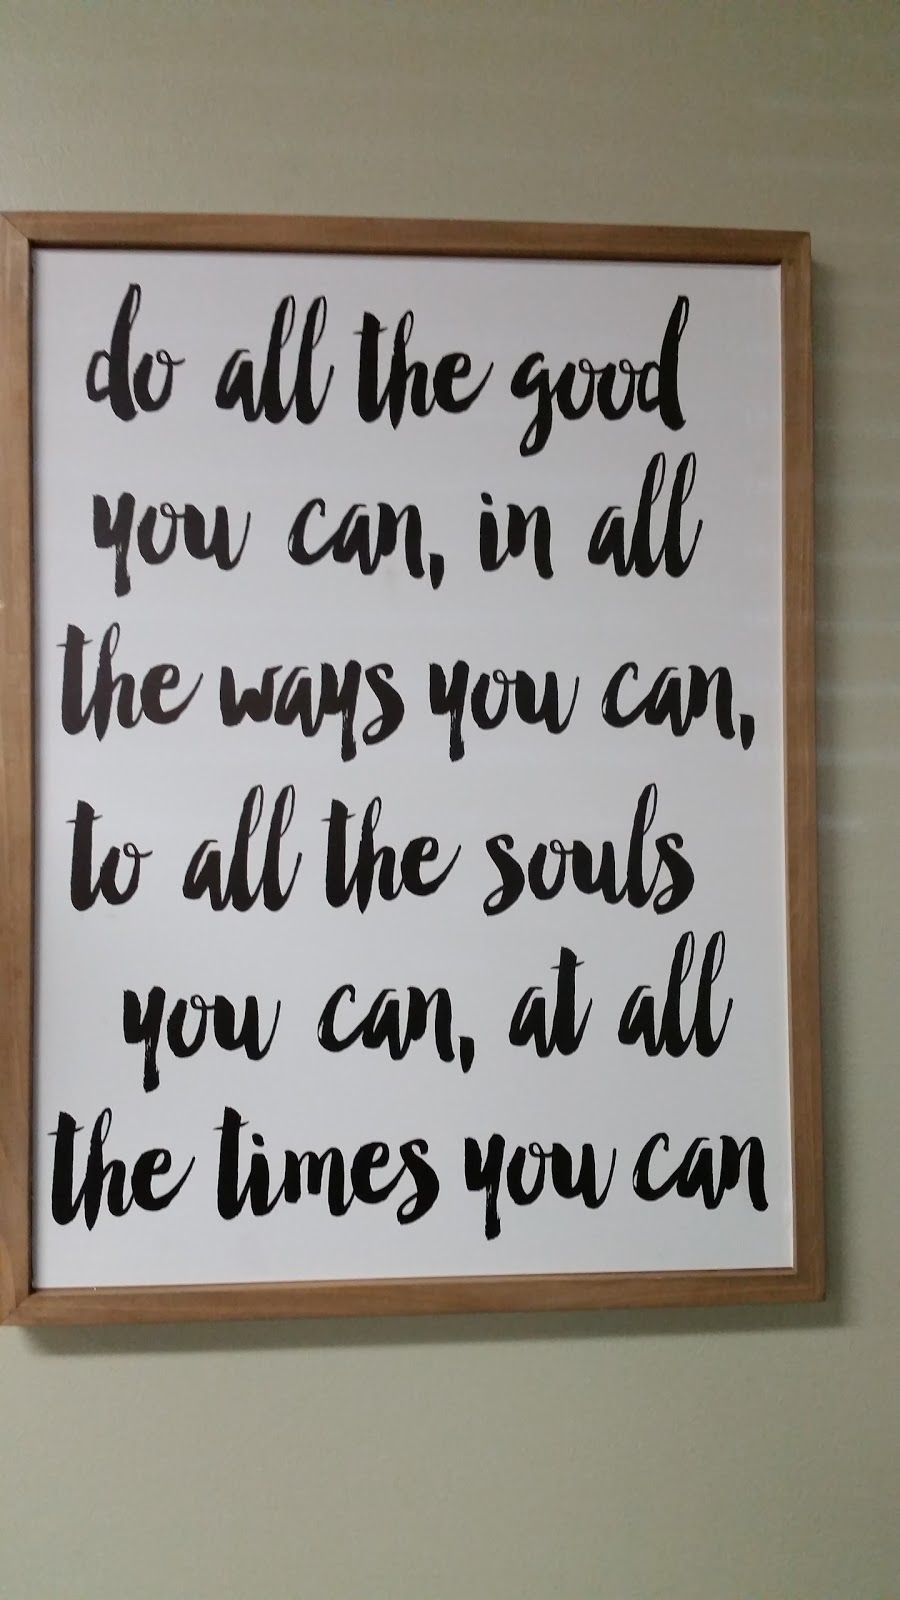 do all the good
you can, in all
the ways you can,
to all the souls
you can, at all
the times you can